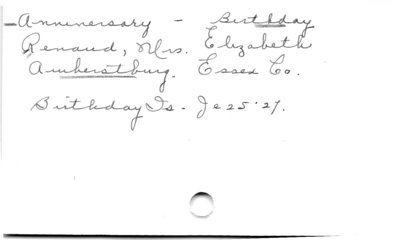 Anniversary - Birthday
Renaud, Mrs. Elizabeth
Amherstburg. Essex Co.
Birthday Is - Je 25 '27.